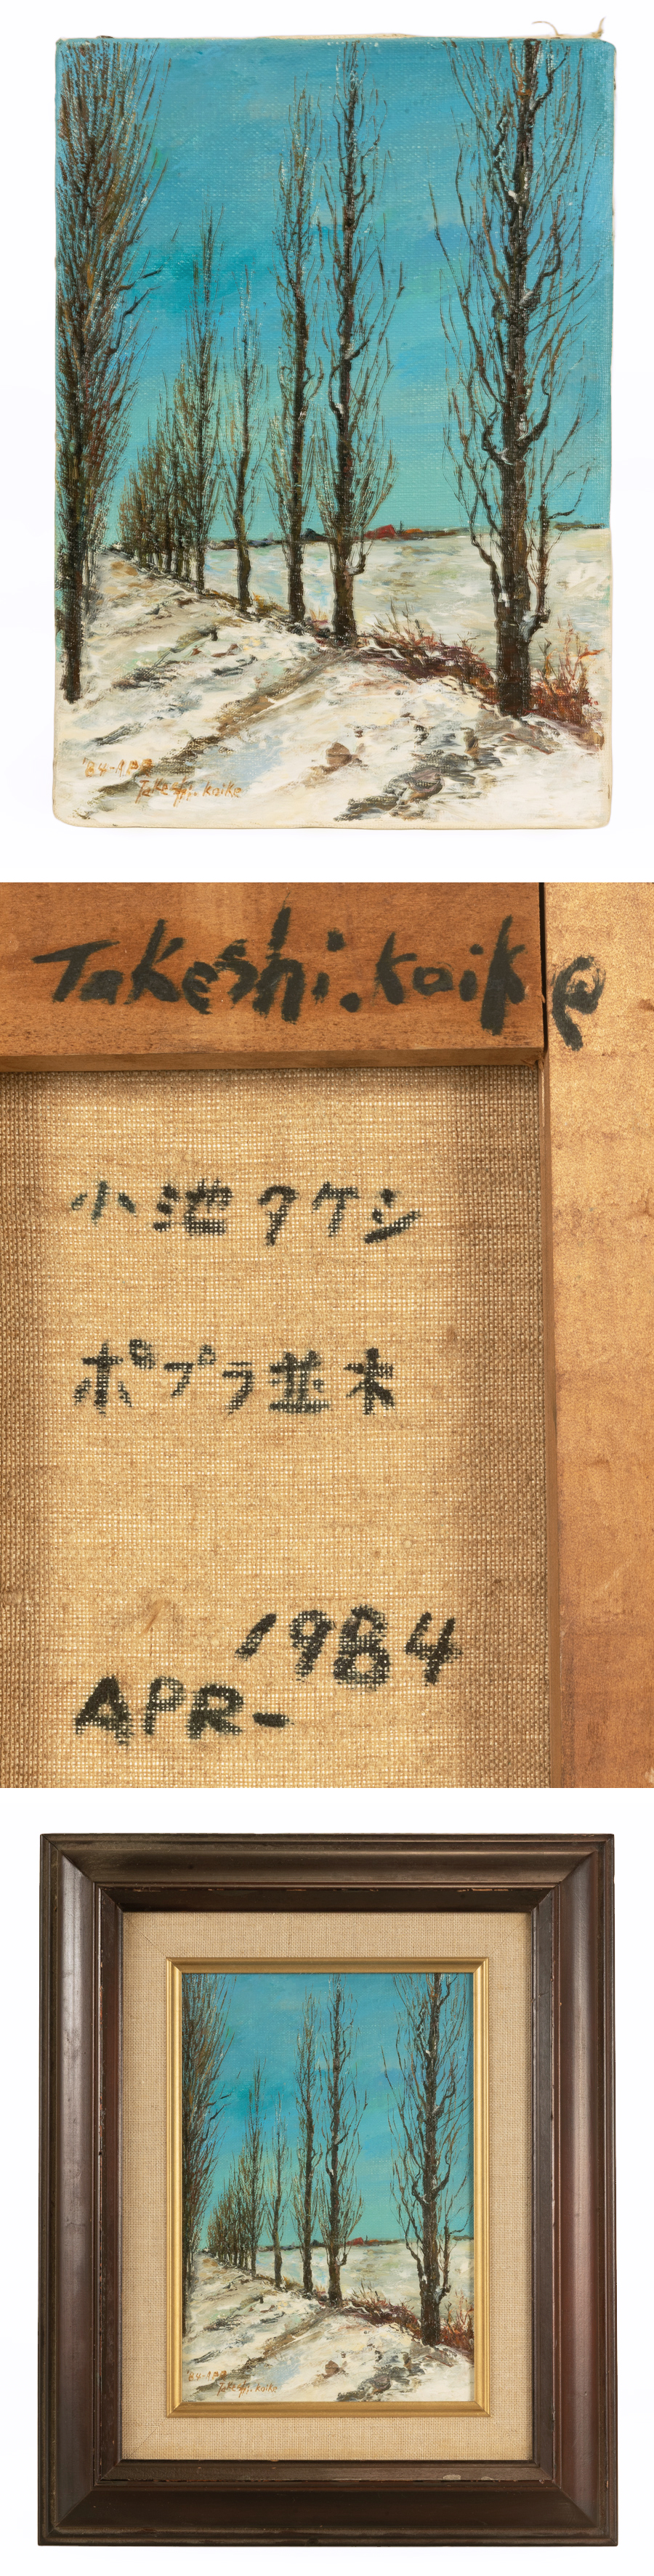 '84-APR
Takeshi.koike
Takeshi.koike
小池タケシ
ポプラ並木
1984
APR-
'84-APR
Takeshi.koike